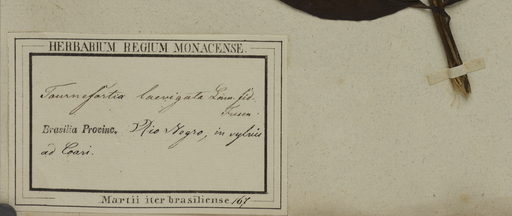 HERBARIUM REGIUM MONACENSE.
Tournefortia laevigata Lam. fid.
Fresen.
Brasilia Provinc. Rio Negro, in sylvis
ad Coari.
Martii iter brasiliense 167